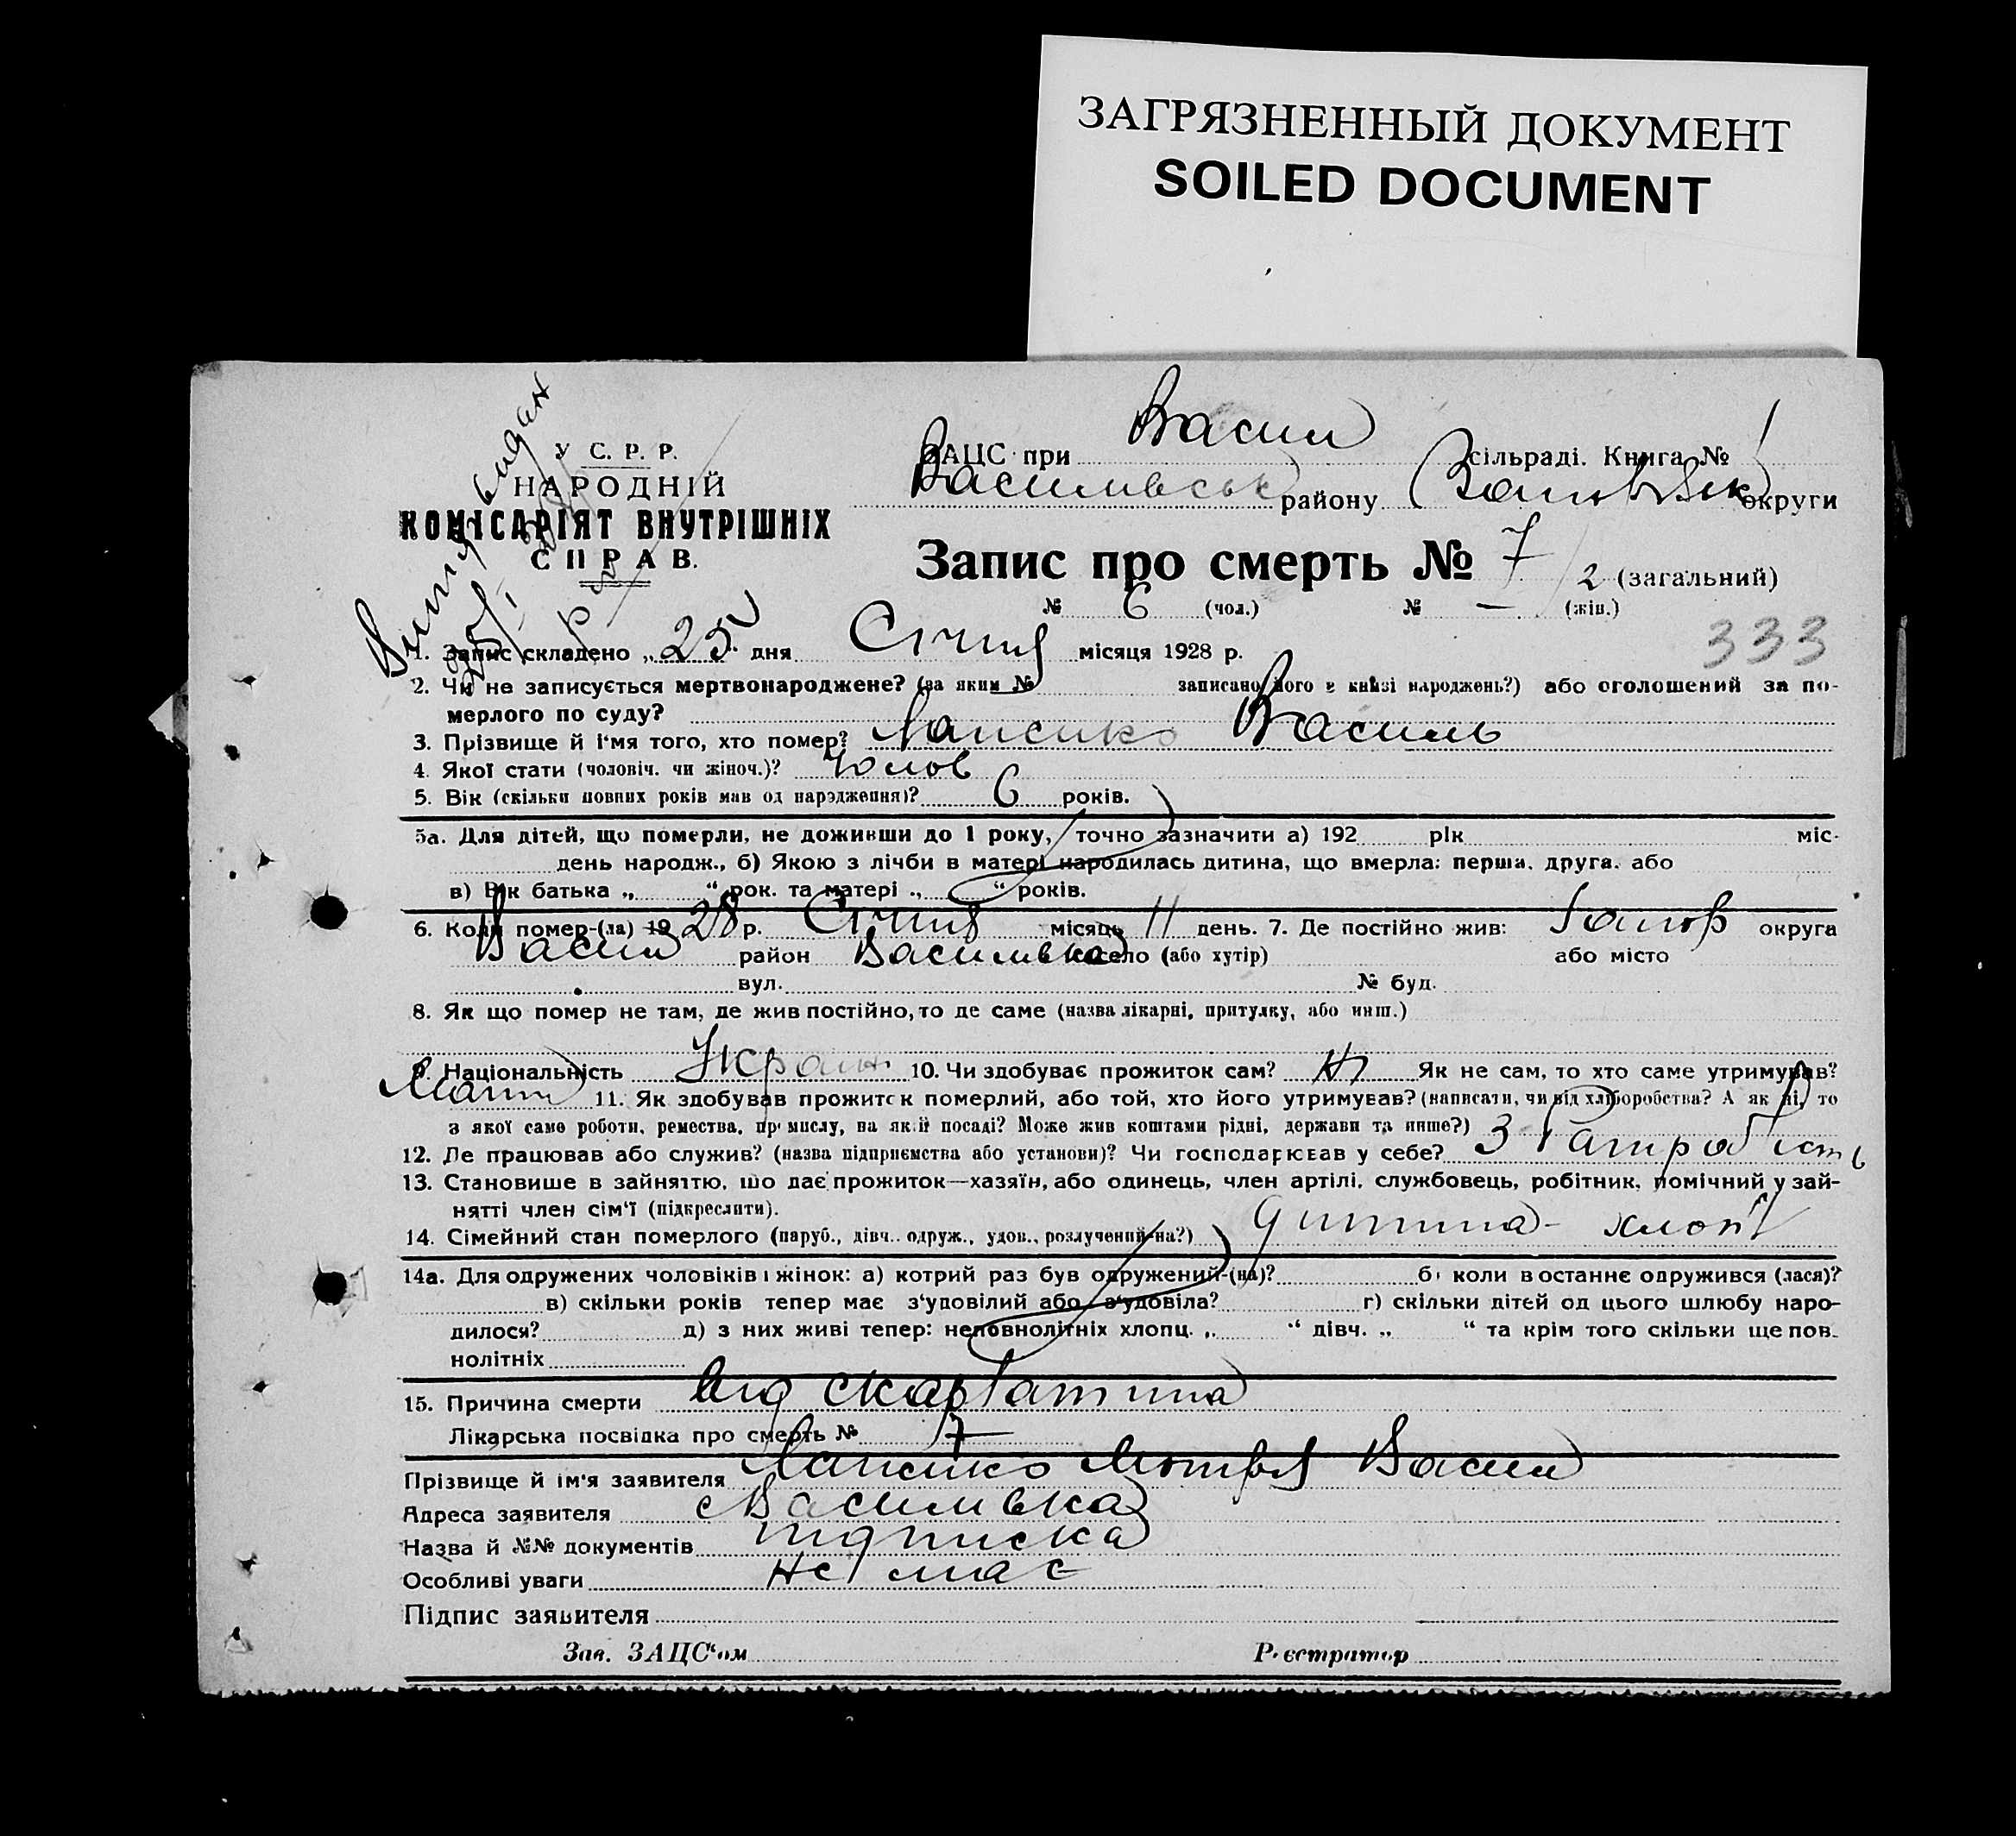 ЗАГРЯЗНЕННЫЙ ДОКУМЕНТ
SOILED DOCUMENT
У С. Р. Р.
НАРОДНІЙ
КОМІСАРІЯТ ВНУТРІШНІХ
СПРАВ.
ЗАЦС при Васил сільраді. Книга № 1
Василівськ району округи
Запис про смерть № 7/2 (загальний)
№ 6 (чол.) № — (жін.)
333
1. Запис складено „25" дня Січня місяця 1928 р.
2. Чи не записується мертвонароджене? (за яким № записано його в книзі народжень?) або оголошений за по-
мерлого по суду?
3. Прізвище й і'мя того, хто помер? Василь
4. Якої стати (чоловіч. чи жіноч.)? Чолов
5. Вік (скільки повних років мав од народження)? 6 років.
5а. Для дітей, що померли, не доживши до 1 року, точно зазначити а) 192 рік міс.
день народж., б) Якою з лічби в матері народилась дитина, що вмерла: перша, друга, або
в) Вік батька „ " рок. та матері „ " років.
6. Коли помер-(ла) 1928 р. Січня місяць 11 день. 7. Де постійно жив: Запор округа
Васил район Василівка село (або хутір) або місто
вул. № буд.
8. Як що помер не там, де жив постійно, то де саме (назва лікарні, притулку, або инш.)
9. Національність Україн 10. Чи здобуває прожиток сам? Ні Як не сам, то хто саме утримував?
Мати 11. Як здобував прожиток померлий, або той, хто його утримував? (написати, чи від хліборобства? А як ні, то
з якої саме роботи, ремества, промислу, на якій посаді? Може жив коштами рідні, держави та инше?)
12. Де працював або служив? (назва підприємства або установи)? Чи господарював у себе? З
13. Становище в зайняттю, що дає прожиток—хазяїн, або одинець, член артілі, службовець, робітник, помічний у зай-
нятті член сім'ї (підкреслити).
14. Сімейний стан померлого (паруб., дівч.. одруж., удов., розлучений-на?) дитина - хлоп
14а. Для одружених чоловіків і жінок: а) котрий раз був одружений-(на)? б) коли востаннє одружився (лася)?
в) скільки років тепер має з'удовілий або з'удовіла? г) скільки дітей од цього шлюбу наро-
дилося? д) з них живі тепер: неповнолітніх хлопц. „ " дівч. „ " та крім того скільки ще пов-
нолітніх
15. Причина смерти від скарлатина
Лікарська посвідка про смерть № 7
Прізвище й ім'я заявителя Мотря Васил
Адреса заявителя с Василівка
Назва й №№ документів підписка
Особливі уваги не має
Підпис заявителя
Зав. ЗАЦС'ом Реєстратор